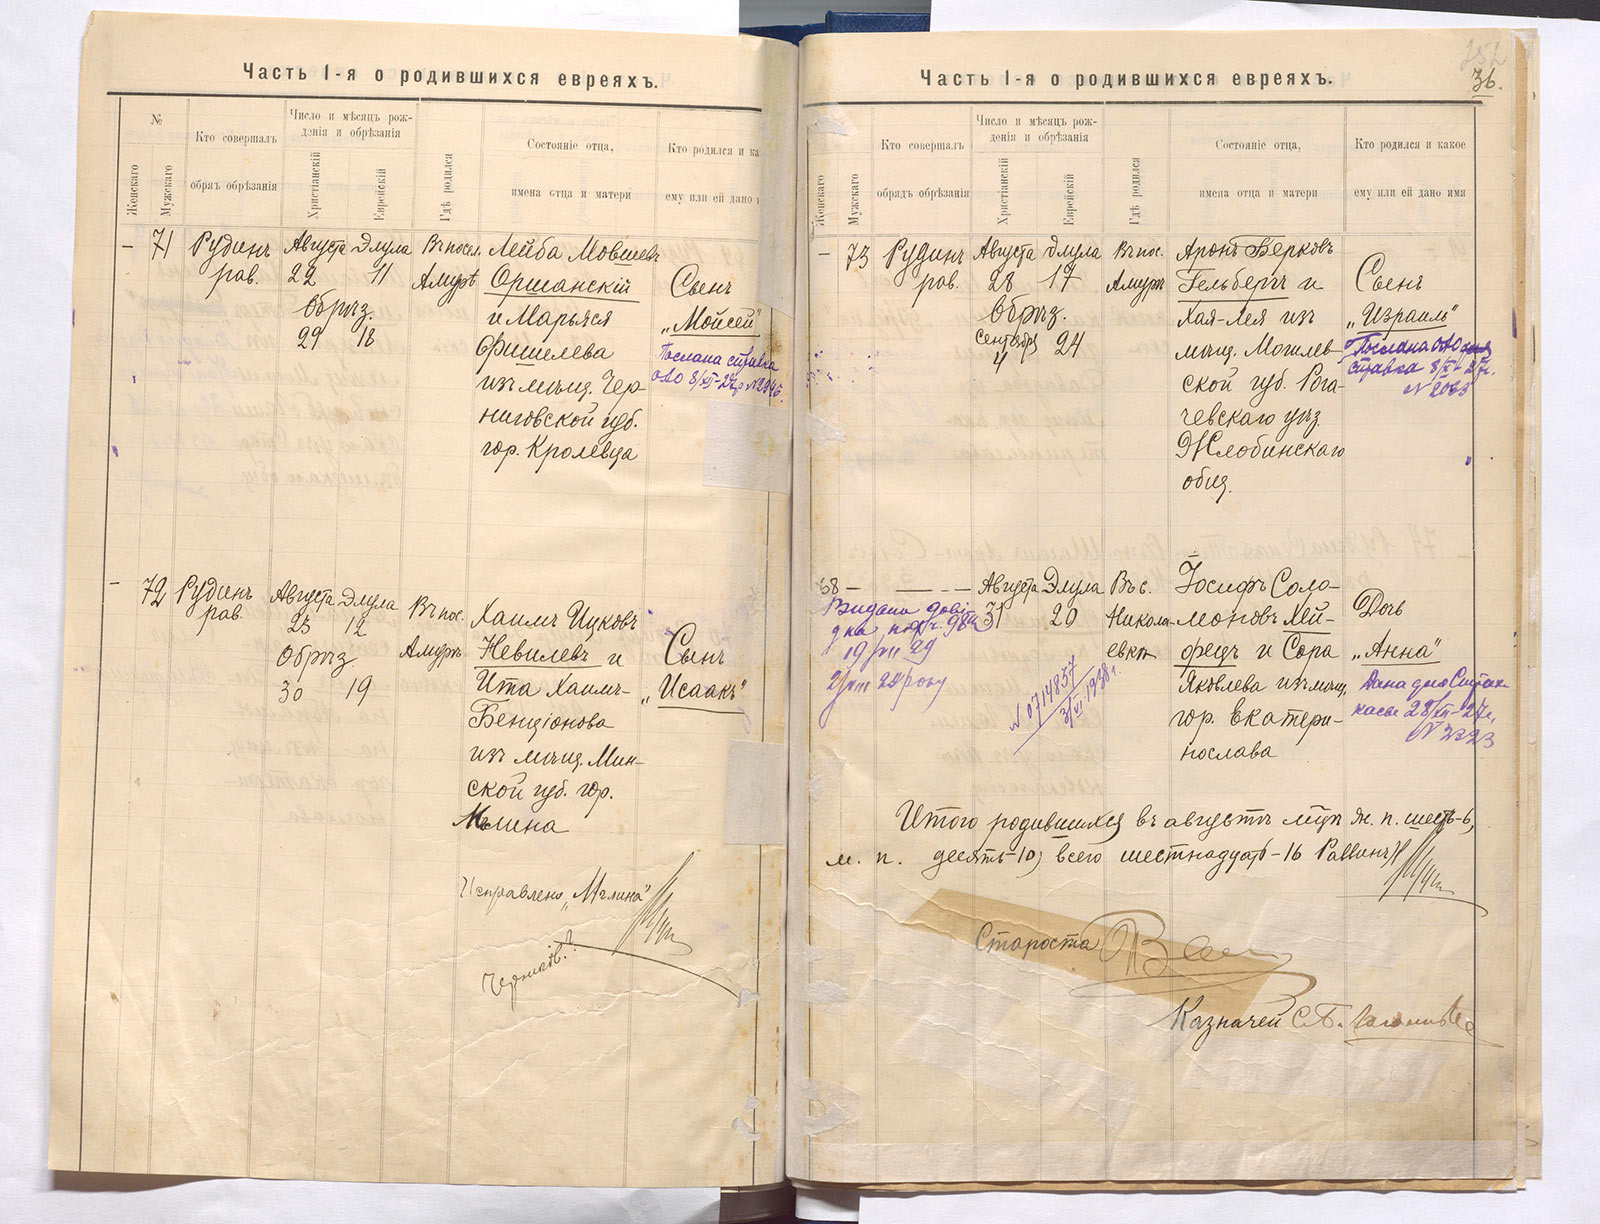 Часть I-я о родившихся евреяхъ.
№
Женскаго
Мужскаго
Кто совершалъ
обрядъ обрѣзанія
Число и мѣсяцъ рож-
денія и обрѣзанія
Христіанскій
Еврейскій
Гдѣ родился
Состояніе отца,
имена отца и матери
Кто родился и ка
ему или ей дано и
– 71 Рудинъ рав.
Августа 22
Элула 11
обрѣз.
29 18
Въ посел. Амурѣ
Лейба Мовшевъ
Оршанскій
и Марьяся
Фишелева
изъ мѣщ. Чер-
ниговской губ.
гор. Кролевца
Сынъ
„Мойсей"
Послана справка
– 72 Рудинъ рав.
Августа 23
Элула 12
Обрѣз
30 19
Въ пос. Амурѣ
Хаимъ Ицковъ
Невилевъ и
Ита Хаимъ-
Бенціонова
изъ мѣщ. Мин-
ской губ. гор.
Мглина
Сынъ
„Исаакъ"
Исправлено „Мглина"
Часть I-я о родившихся евреяхъ.
36.
Женскаго
Мужскаго
Кто совершалъ
обрядъ обрѣзанія
Число и мѣсяцъ рож-
денія и обрѣзанія
Христіанскій
Еврейскій
Гдѣ родился
Состояніе отца,
имена отца и матери
Кто родился и какое
ему или ей дано имя
– 73 Рудинъ рав.
Августа 28
Элула 17
Обрѣз.
Сентября 4
24
Въ пос. Амурѣ
Аронъ Берковъ
Гельбергъ и
Хая-Лея изъ
мѣщ. Могилев-
ской губ. Рога-
чевскаго уѣз.
Жлобинскаго
общ.
Сынъ
„Израиль"
Послана
справка 8/XI-27г.
68 – – – –
Августа 31
Элула 20
Въ с.
Никола-
евкѣ
Іосифъ Соло-
моновъ Хей-
фецъ и Сора
Яковлева изъ мѣщ.
гор. Екатери-
нослава
Дочь
„Анна"
№ 0714857
3/VI 1938 г.
Итого родившихся въ августѣ мцѣ ж. п. шесть-6,
м. п. десять-10, всего шестнадцать-16 Раввинъ
Староста
Казначей С.Б.